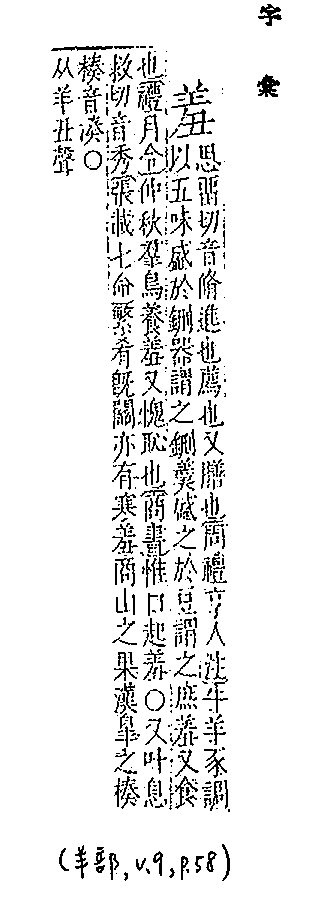 字彙
羞
思畱切音脩進也薦也又膳也周禮亨人注牛羊豕調
以五味盛於鉶器謂之鉶羹盛之於豆謂之庶羞又食
也禮月令仲秋羣鳥養羞又愧恥也商書惟口起羞○又叶息
救切音秀張載七命繁肴旣闋亦有寒羞商山之果漢皐之楱
楱音湊○
从羊丑聲
(羊部, v.9, p.58)